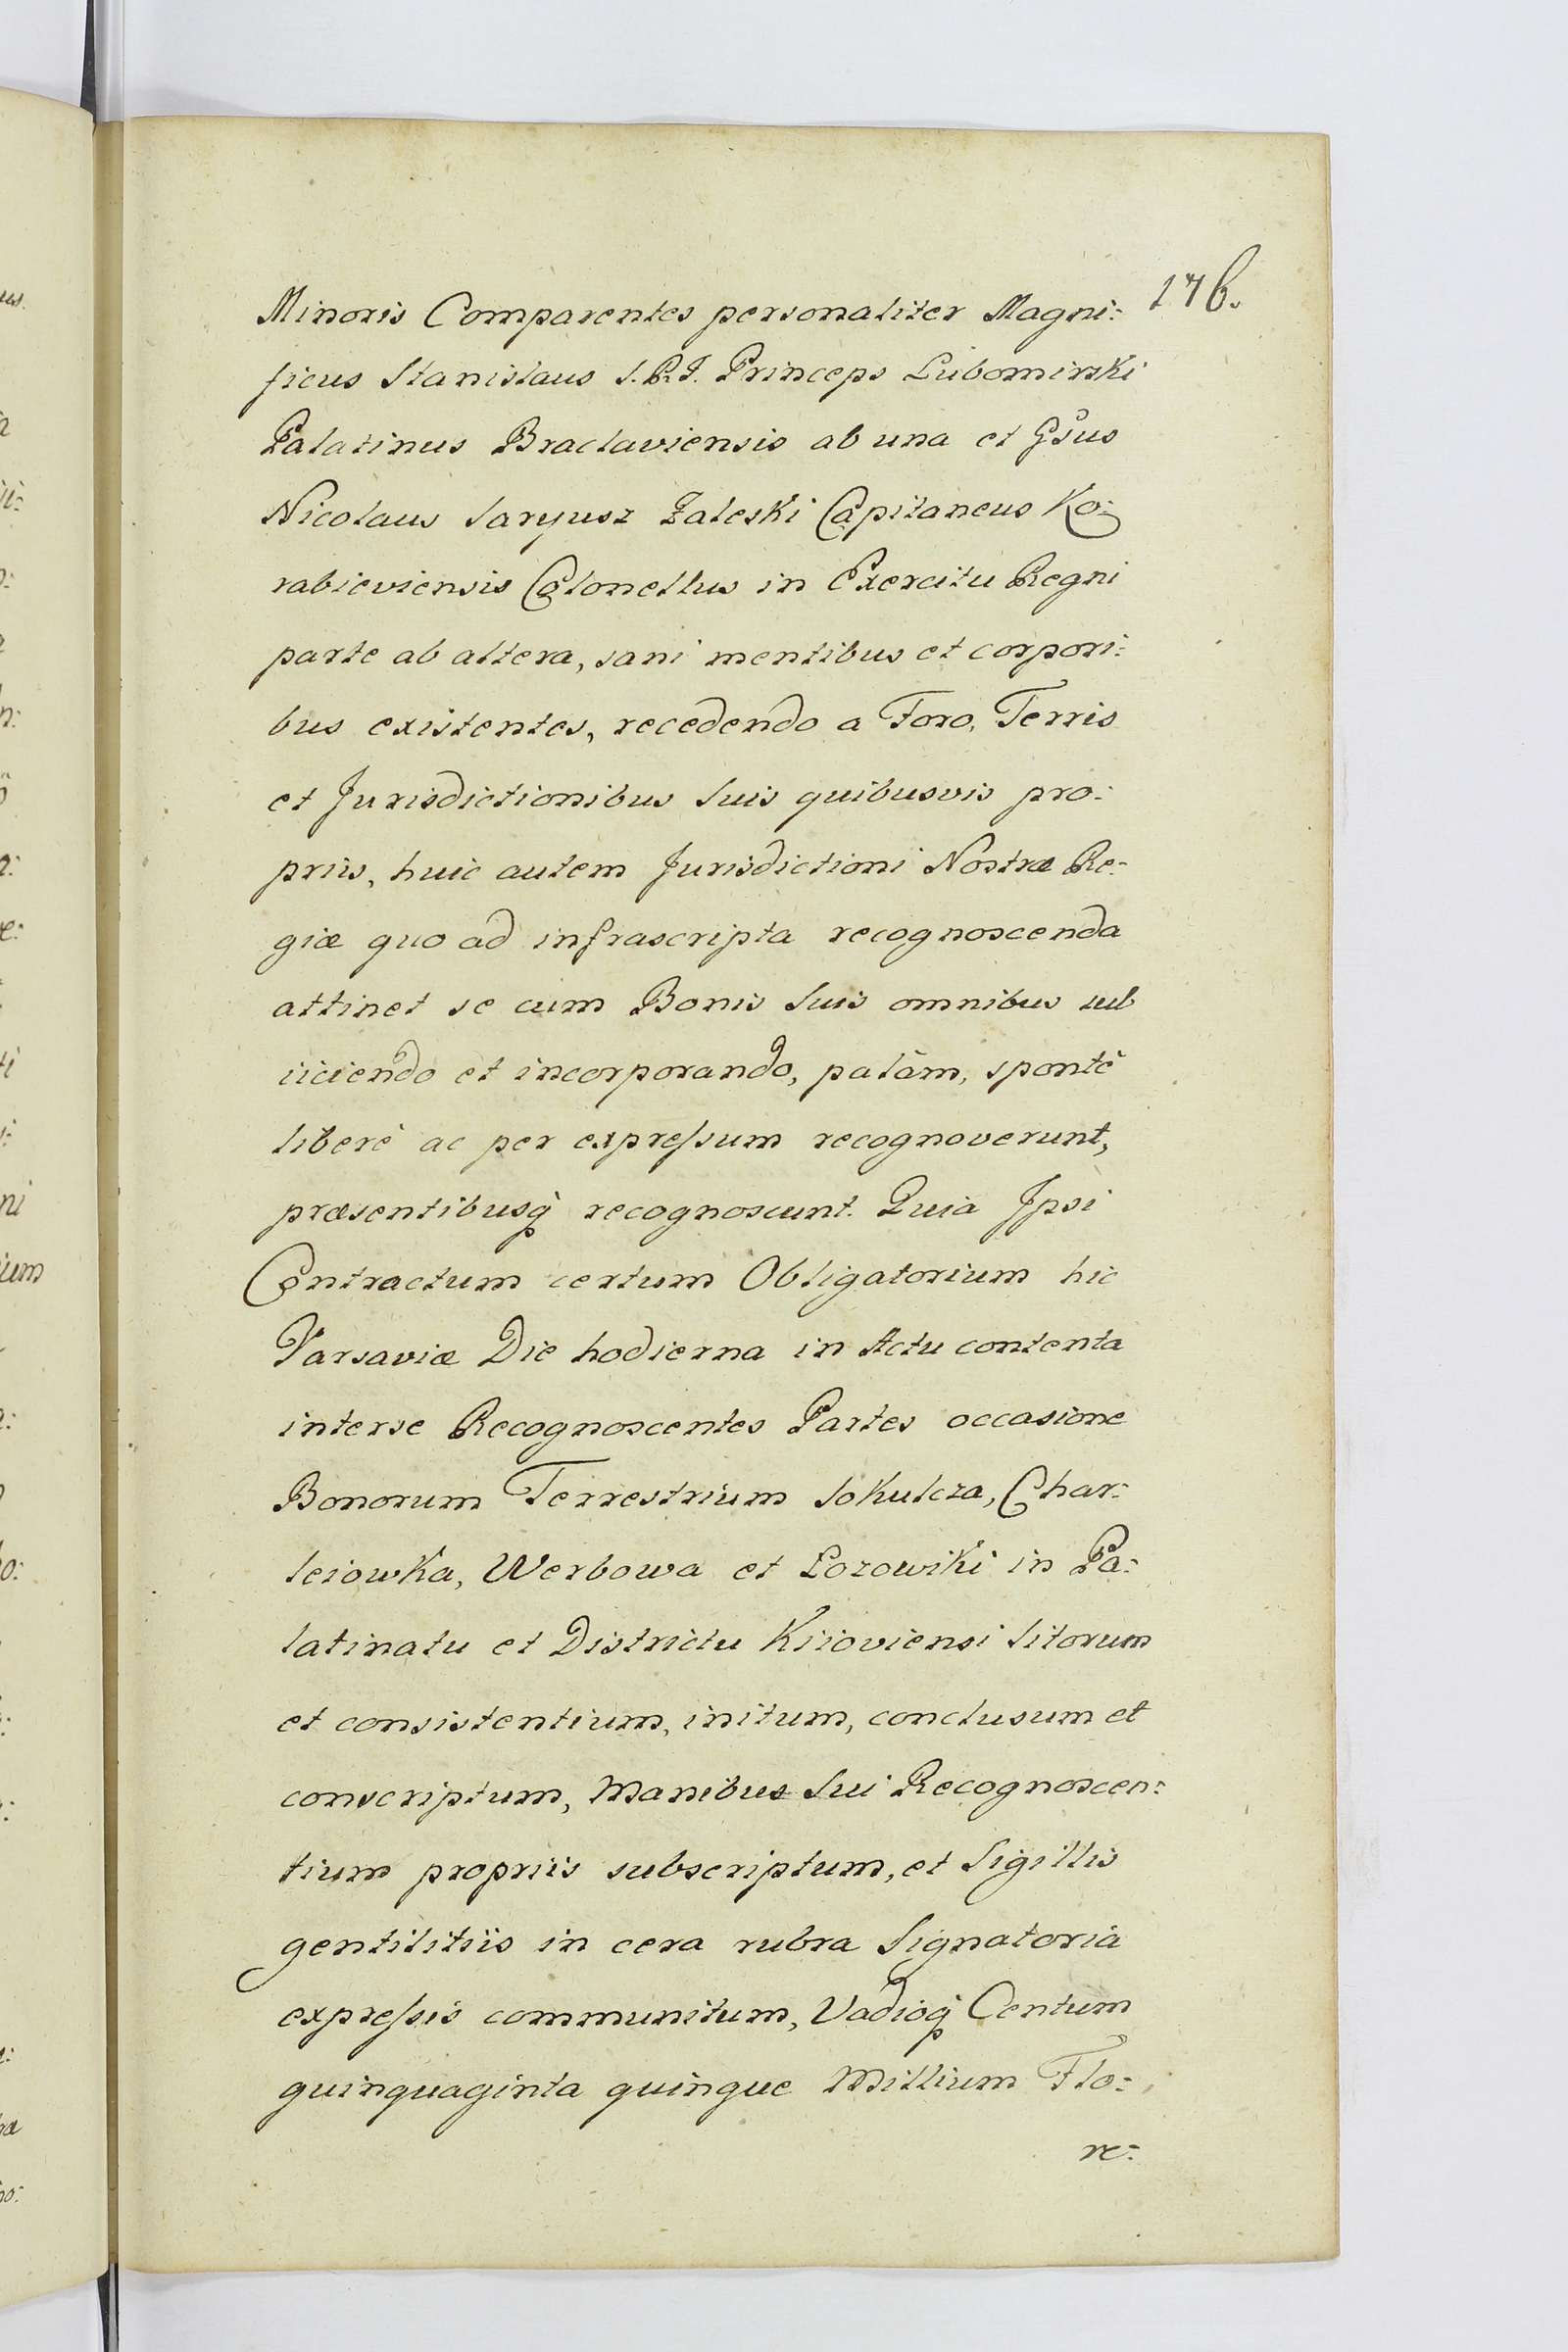 176.
Minoris Comparentes personaliter Magni:
ficus Stanislaus S.R.I. Princeps Lubomirski
Palatinus Braclaviensis ab una et Gsus
Nicolaus Saryusz Zaleski Capitaneus Ko:
rabieviensis Colonellus in Exercitu Regni
parte ab altera, sani mentibus et corpori:
bus existentes, recedendo a Foro, Terris
et Jurisdictionibus Suis quibusvis pro:
priis, huic autem Jurisdictioni Nostræ Re:
giæ quo ad infrascripta recognoscenda
attinet se cum Bonis Suis omnibus sub
iiciendo et incorporando, palàm, spontè
liberè ac per expressum recognoverunt,
præsentibusq̀ recognoscunt. Quia Ipsi
Contractum certum Obligatorium hic
Varsaviæ Die hodierna in Actu contenta
interse Recognoscentes Partes occasione
Bonorum Terrestrium Sokulcza, Char:
leiowka, Werbowa et Lozowiki in Pa:
latinatu et Districtu Kiioviensi Sitorum
et consistentium, initum, conclusum et
conscriptum, Manibus Sui Recognoscen:
tium propriis subscriptum, et Sigillis
gentilitiis in cera rubra Signatoria
expressis communitum, Vadioq̀ Centum
quinquaginta quinque Millium Flo:
re: